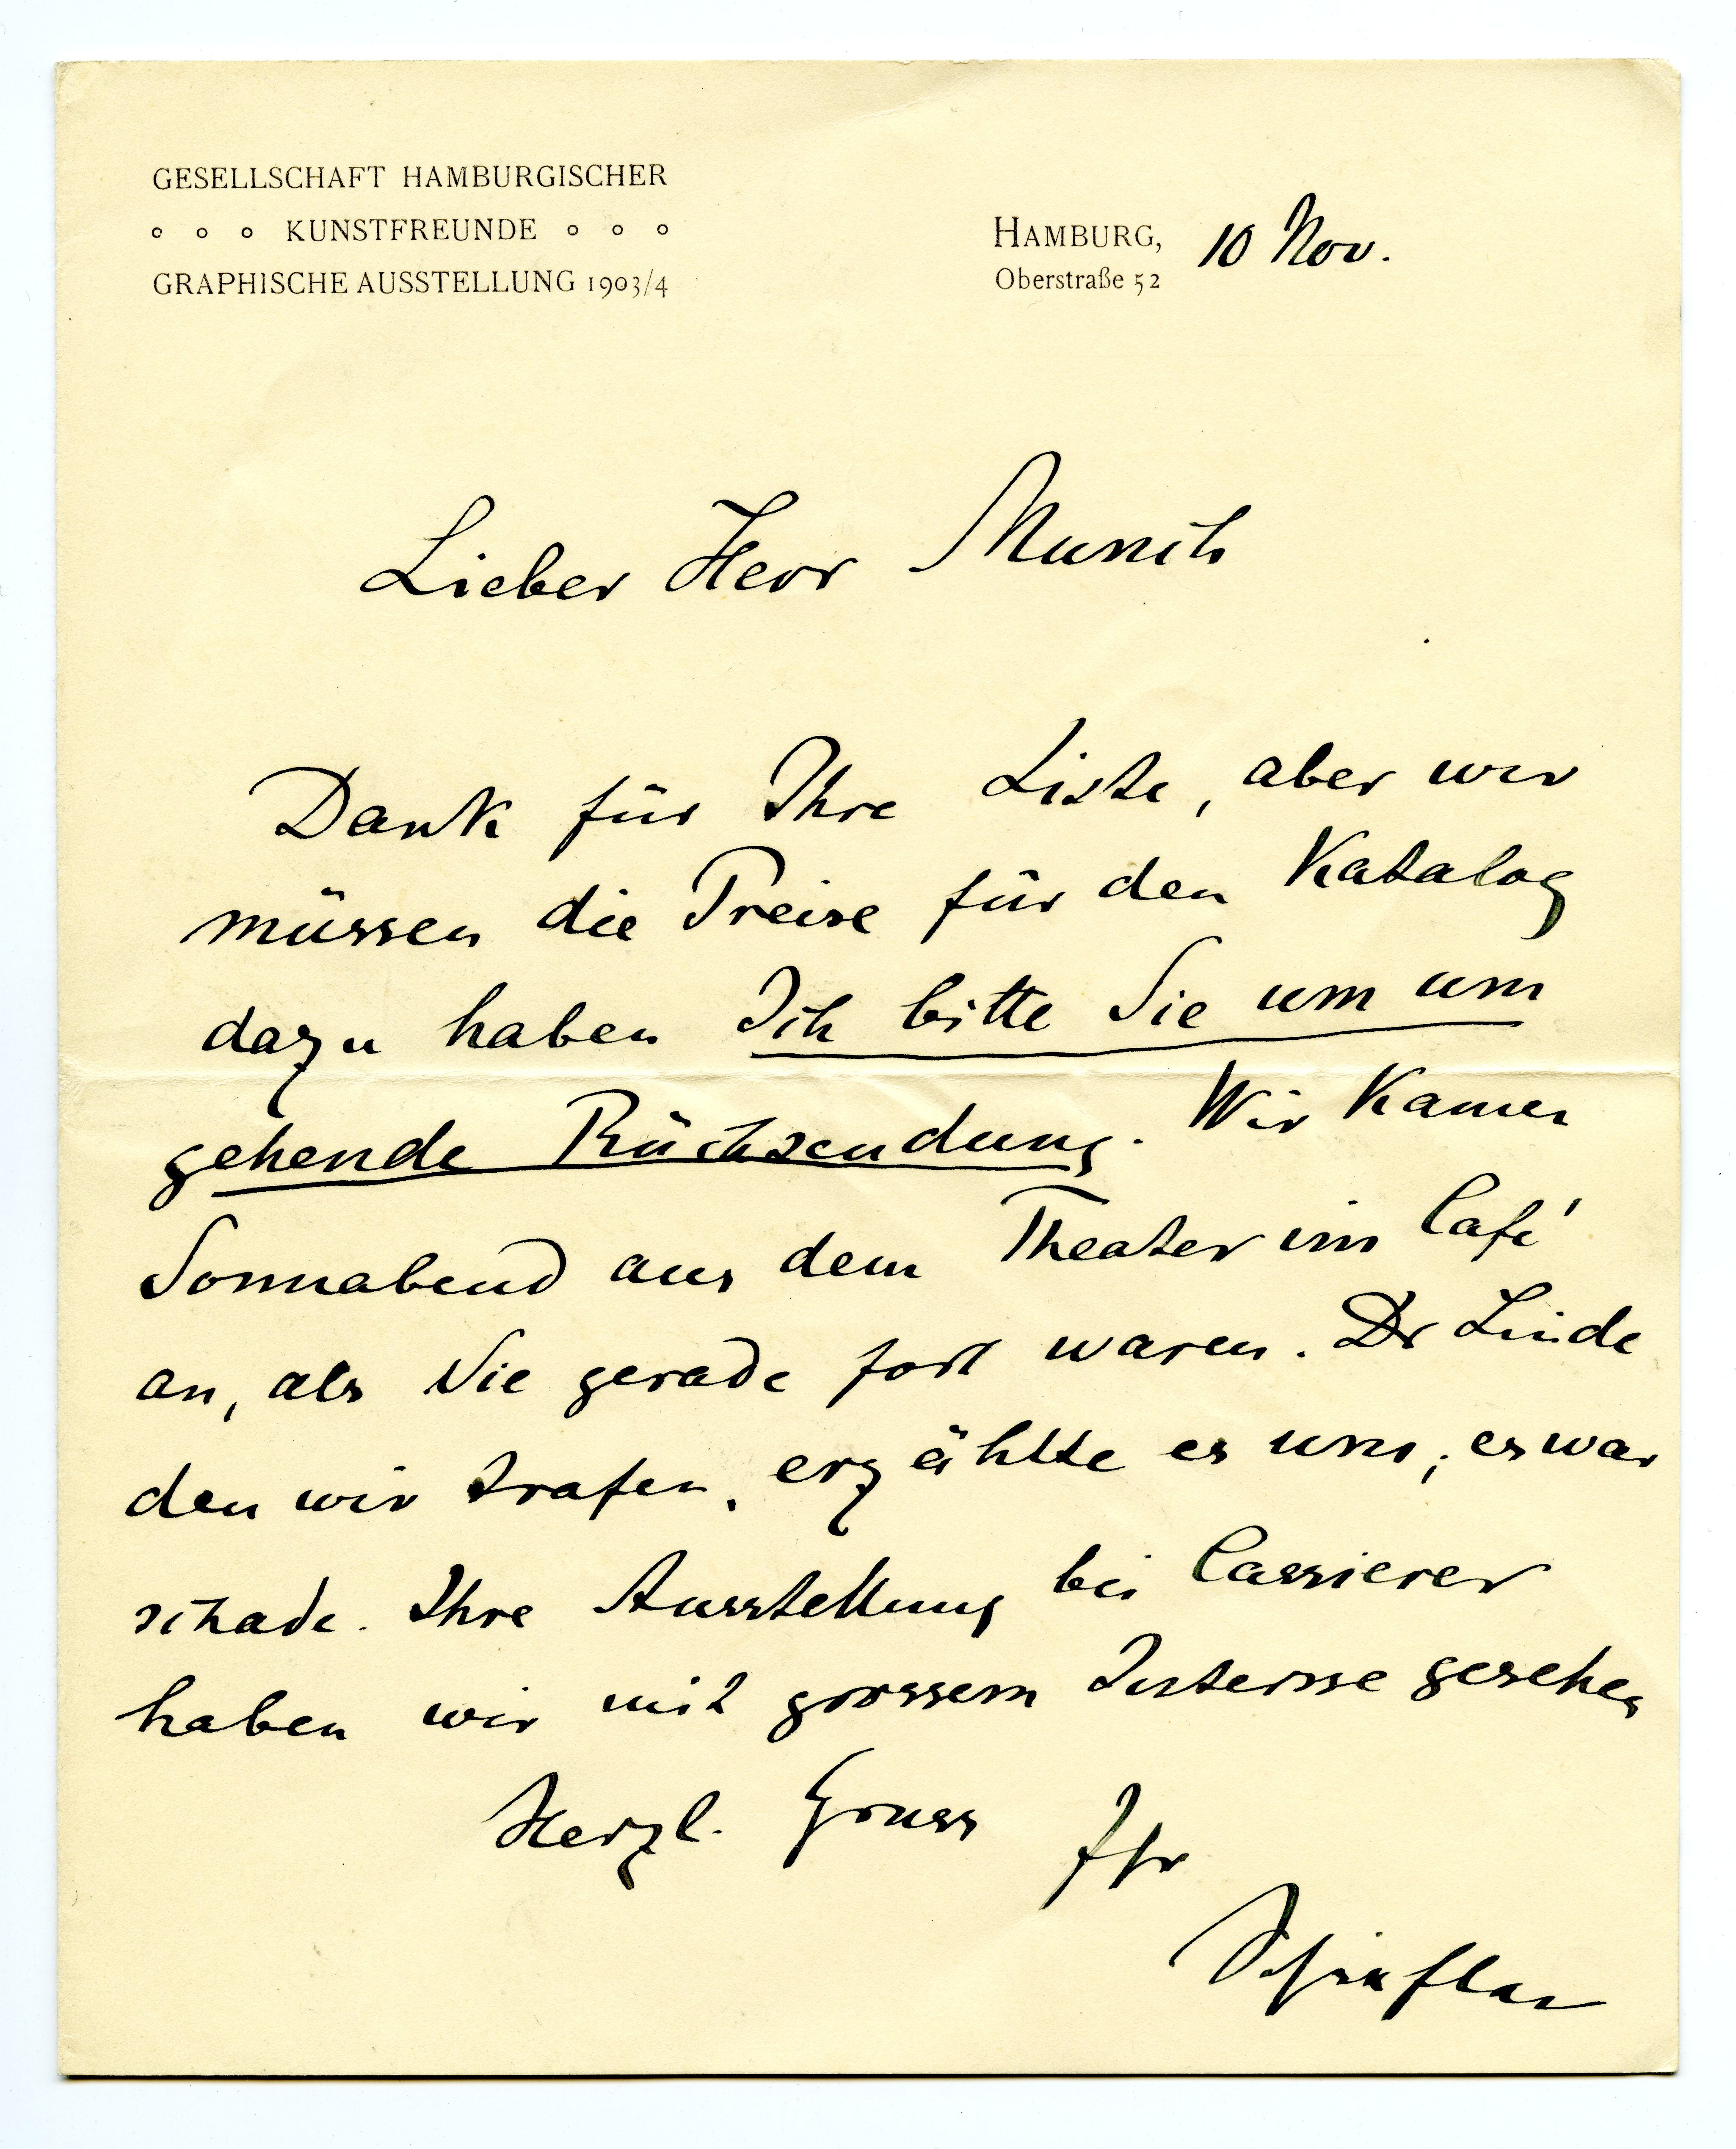 GESELLSCHAFT HAMBURGISCHER
∘ ∘ ∘ KUNSTFREUNDE ∘ ∘ ∘
GRAPHISCHE AUSSTELLUNG 1903/4
HAMBURG, 10 Nov.
Oberstraße 52
Lieber Herr Munch
Dank für Ihre Liste, aber wir
müssen die Preise für den Katalog
dazu haben Ich bitte Sie um um
gehende Rücksendung. Wir kamen
Sonnabend aus dem Theater im Café
an, als Sie gerade fort waren. Dr Linde
den wir trafen, erzählte es uns; es war
schade. Ihre Ausstellung bei Cassierer
haben wir mit grossem Interesse gesehen
Herzl. Gruss Ihr
Schiefler